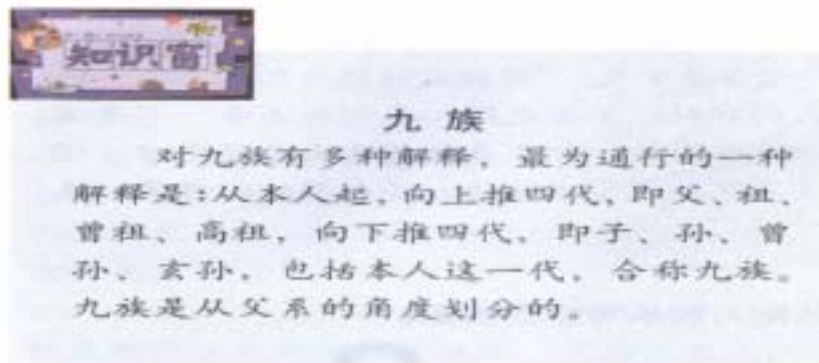 知识窗
九 族
对九族有多种解释，最为通行的一种
解释是：从本人起，向上推四代，即父、祖、
曾祖、高祖，向下推四代，即子、孙、曾
孙、玄孙，包括本人这一代，合称九族。
九族是从父系的角度划分的。